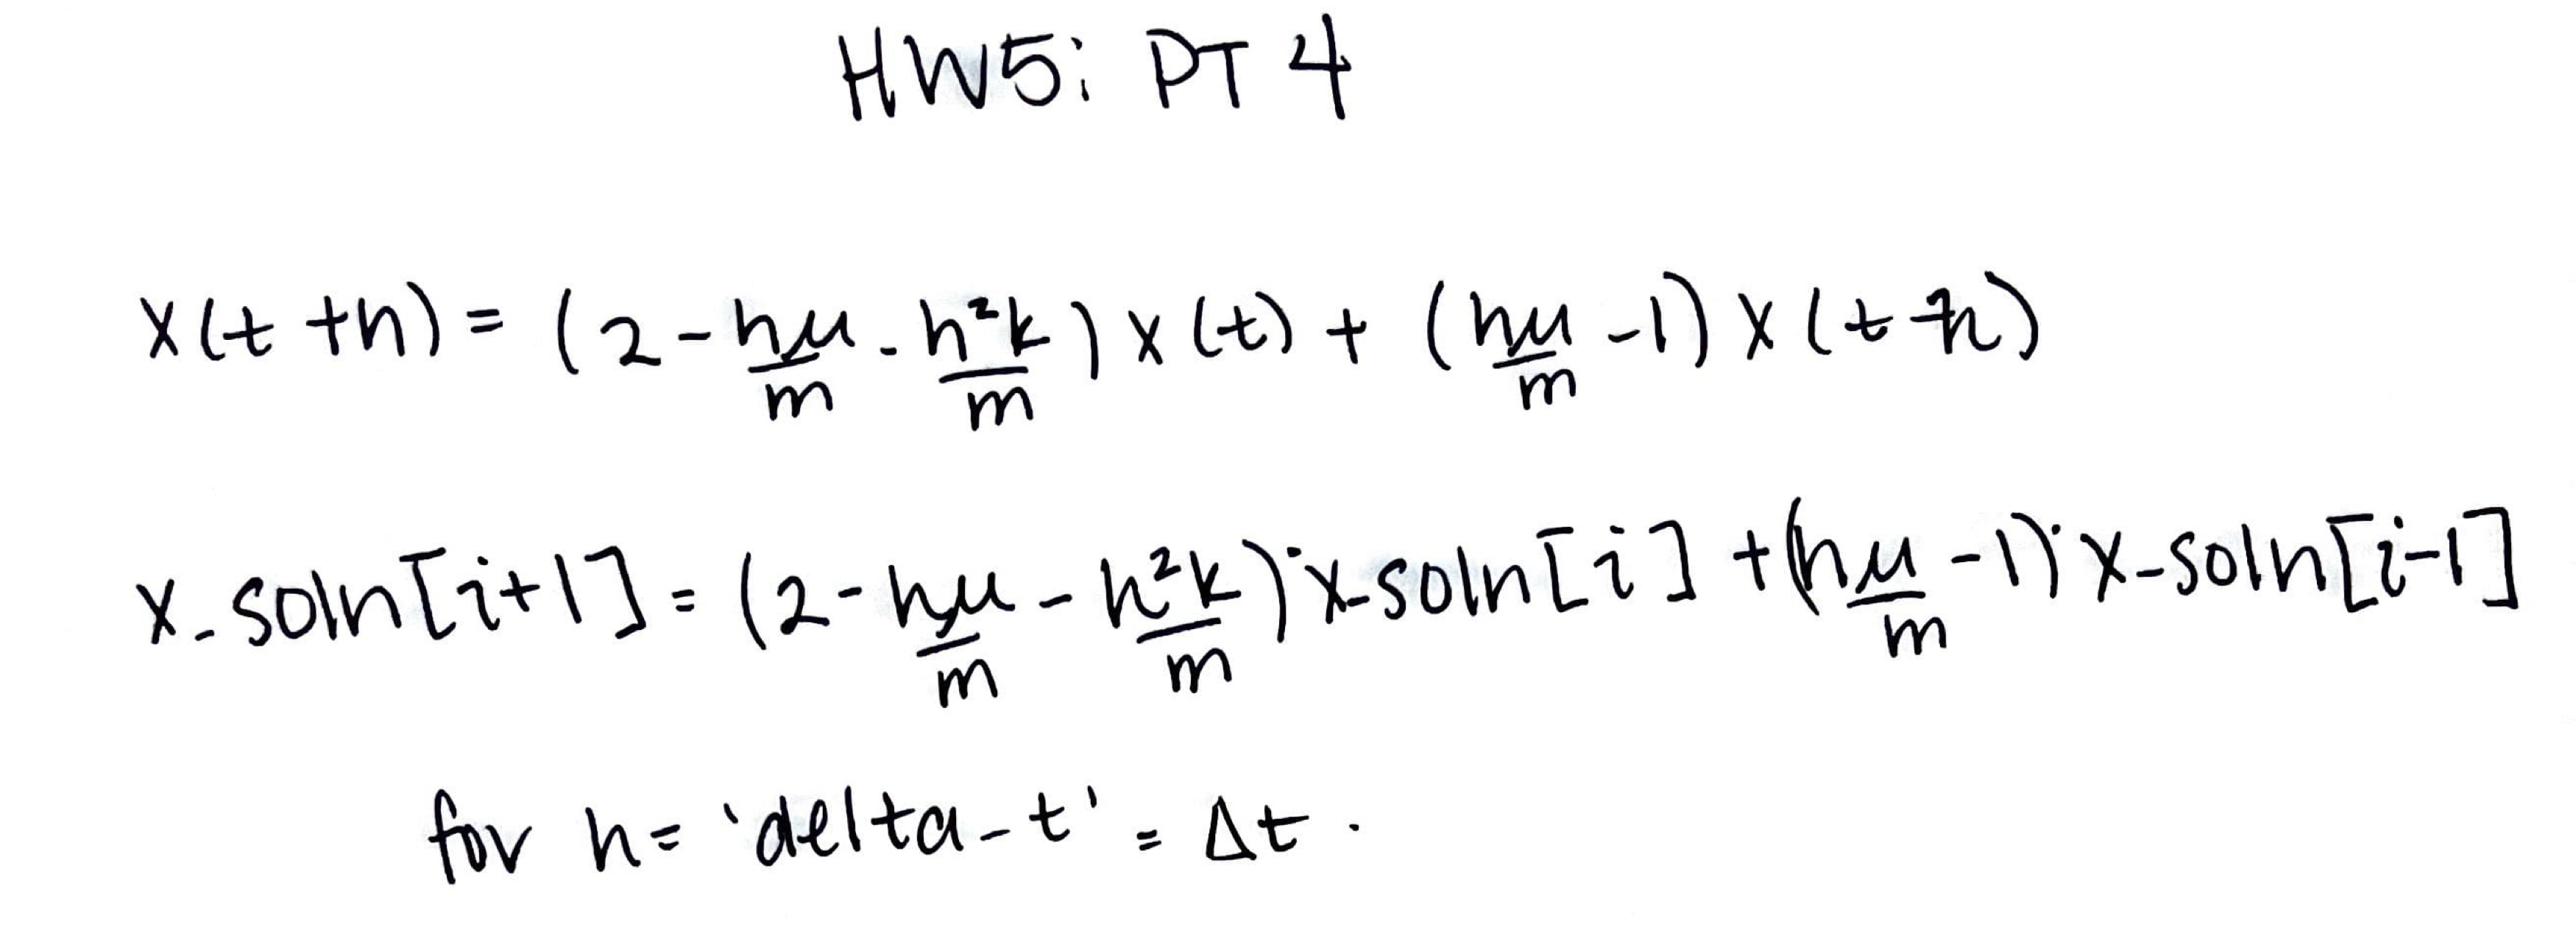 HW5: PT 4
x(t+h) = (2 - hμ/m - h²k/m) x(t) + (hμ/m - 1) x(t-h)
x_soln[i+1] = (2 - hμ/m - h²k/m)·x_soln[i] + (hμ/m - 1)·x_soln[i-1]
for h = 'delta_t' = Δt.